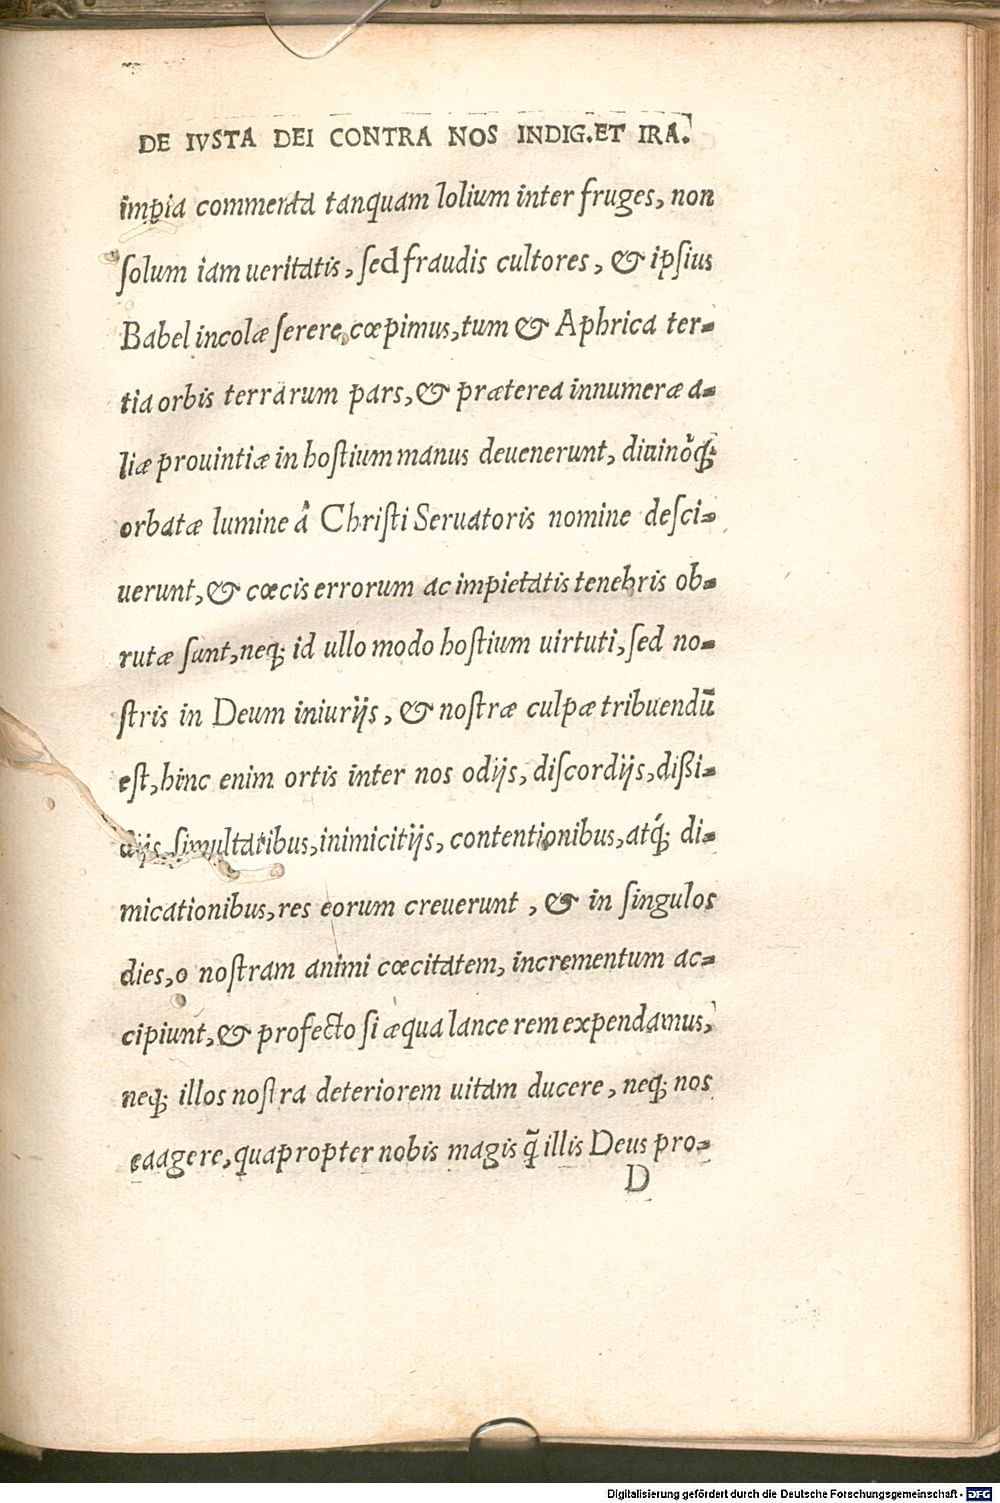 DE IVSTA DEI CONTRA NOS INDIG.ET IRA.
impia commenta tanquam lolium inter fruges, non
ſolum iam ueritatis, ſed fraudis cultores, & ipſius
Babel incolæ ſerere cœpimus, tum & Aphrica ter-
tia orbis terrarum pars, & præterea innumeræ a-
liæ prouintiæ in hoſtium manus deuenerunt, diuinoq́;
orbatæ lumine á Chriſti Seruatoris nomine deſci-
uerunt, & cœcis errorum ac impietatis tenebris ob-
rutæ ſunt, neq; id ullo modo hoſtium uirtuti, ſed no-
ſtris in Deum iniurijs, & noſtræ culpæ tribuendū
eſt, hinc enim ortis inter nos odijs, diſcordijs, dißi-
dijs ſimultatibus, inimicitijs, contentionibus, atq́; di-
micationibus, res eorum creuerunt, & in ſingulos
dies, o noſtram animi cœcitatem, incrementum ac-
cipiunt, & profecto ſi æqua lance rem expendamus,
neq; illos noſtra deteriorem uitam ducere, neq; nos
ea agere, quapropter nobis magis q̃ illis Deus pro-
D
Digitalisierung gefördert durch die Deutsche Forschungsgemeinschaft - DFG